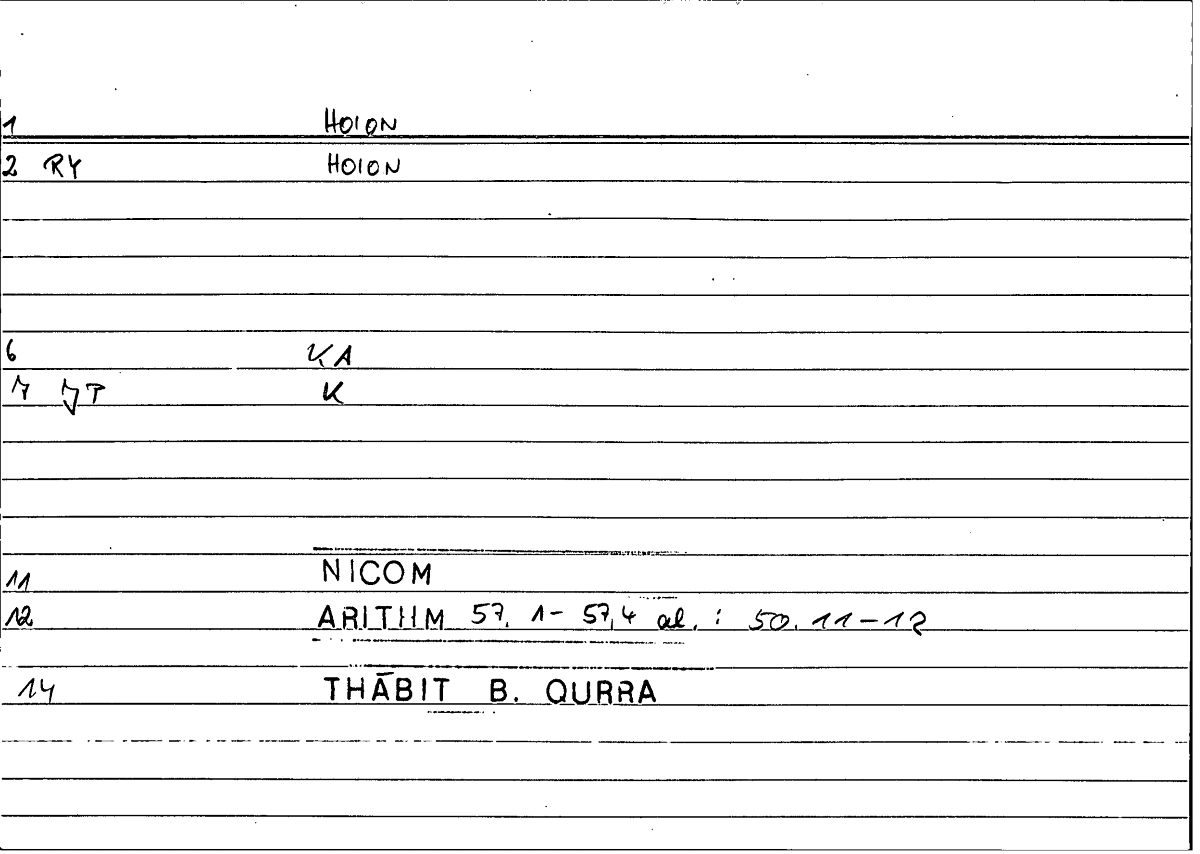 1 HOION
2 RY HOION
6 KA
7 JT K
11 NICOM
12 ARITHM 57. 1- 57,4 al. : 50. 11-12
14 THĀBIT B. QURRA